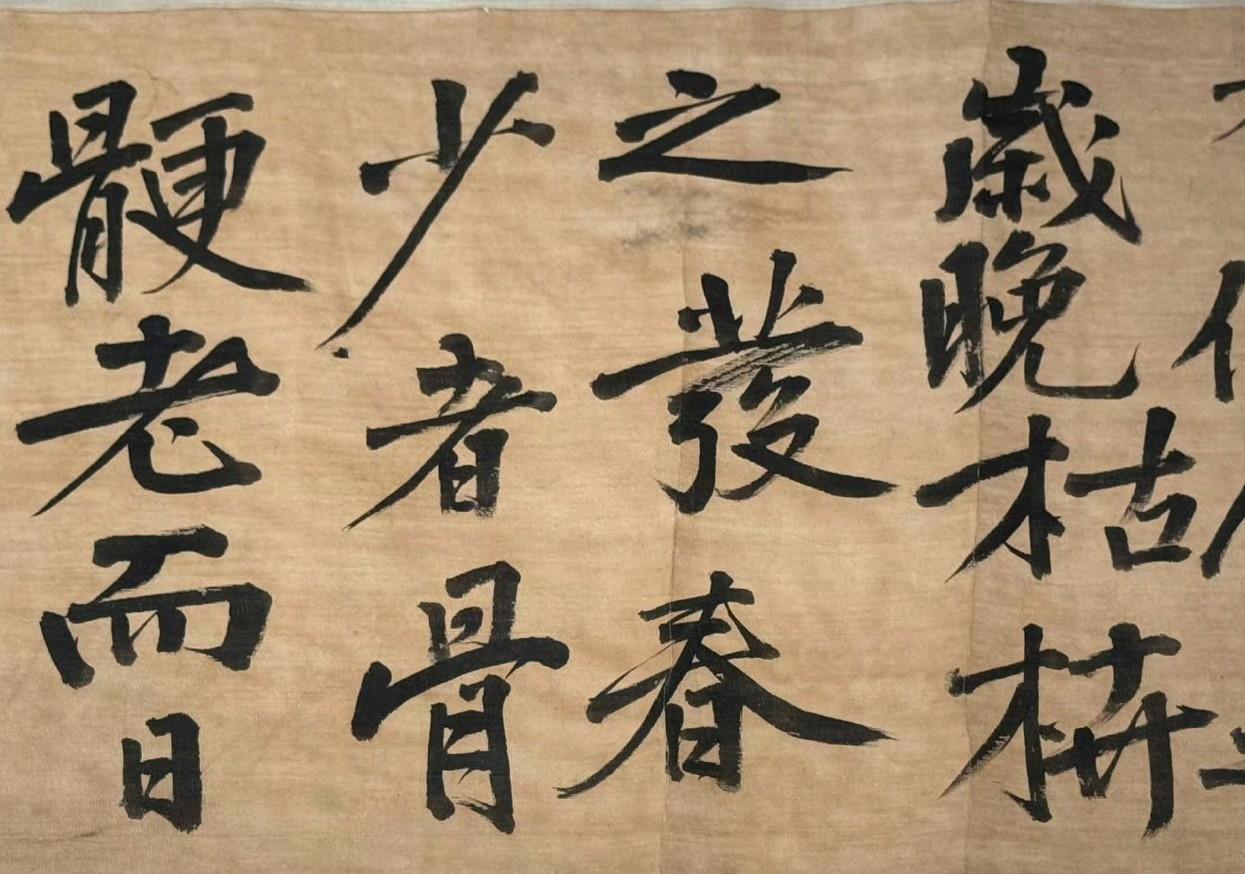 歲晚枯枿
之發春
少者骨
骾老而日